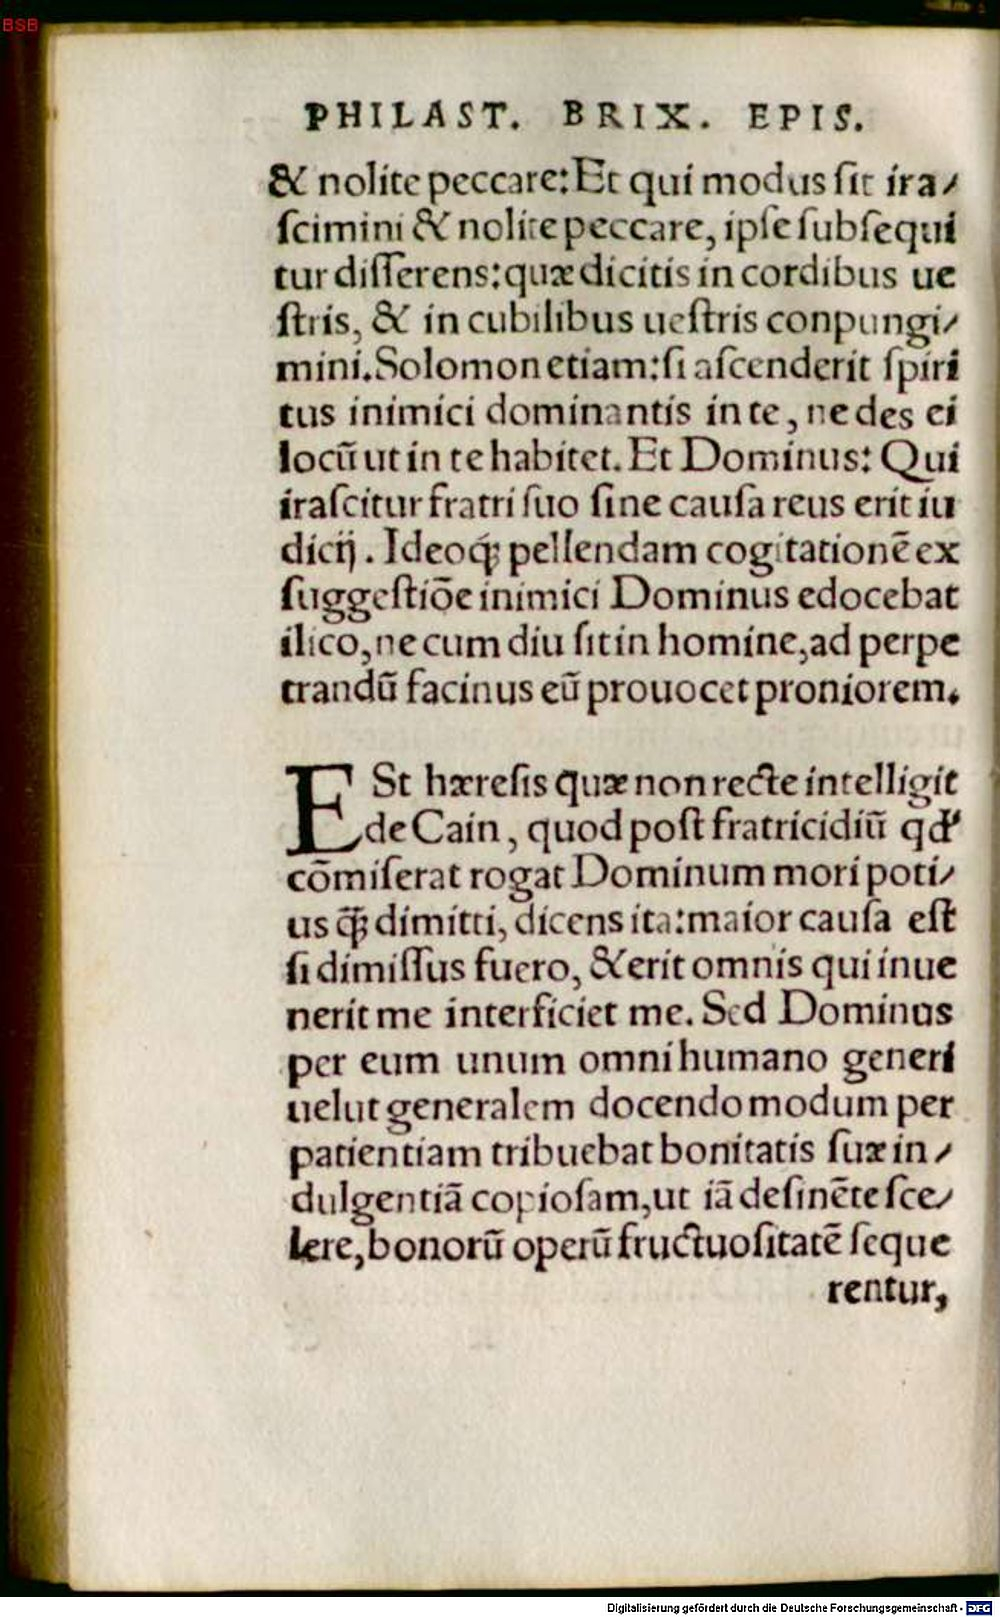 BSB
PHILAST. BRIX. EPIS.
& nolite peccare: Et qui modus ſit ira⸗
ſcimini & nolite peccare, ipſe ſubſequi
tur diſſerens: quæ dicitis in cordibus ue
ſtris, & in cubilibus ueſtris conpungi⸗
mini. Solomon etiam: ſi aſcenderit ſpiri
tus inimici dominantis in te, ne des ei
locū ut in te habitet. Et Dominus: Qui
iraſcitur fratri ſuo ſine cauſa reus erit iu
dicij. Ideoq́; pellendam cogitationē ex
ſuggeſtiōe inimici Dominus edocebat
ilico, ne cum diu ſit in homine, ad perpe
trandū facinus eū prouocet proniorem.
ESt hæreſis quæ non recte intelligit
de Cain, quod poſt fratricidiū qđ
cōmiſerat rogat Dominum mori poti⸗
us q̄; dimitti, dicens ita: maior cauſa eſt
ſi dimiſſus fuero, & erit omnis qui inue
nerit me interficiet me. Sed Dominus
per eum unum omni humano generi
uelut generalem docendo modum per
patientiam tribuebat bonitatis ſuæ in⸗
dulgentiā copioſam, ut iā deſinēte ſce⸗
lere, bonorū operū fructuoſitatē ſeque
rentur,
Digitalisierung gefördert durch die Deutsche Forschungsgemeinschaft - DFG